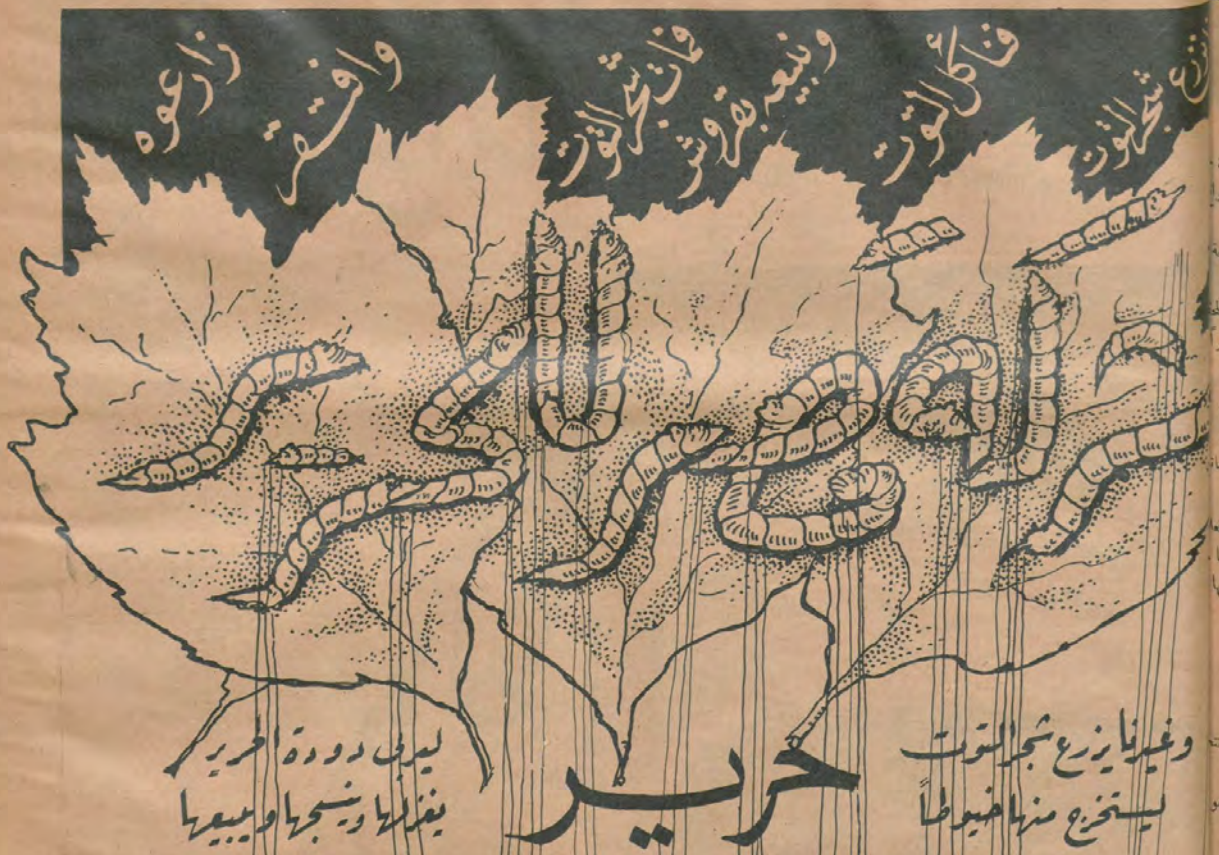 نزرع شجر التوت
فنأكل التوت
ونبيعه بقروش
فمات شجر التوت
وافتقر
زارعوه
وغيرنا يزرع شجر التوت
ليستخرج منها خيوطاً
حرير
ليربي دودة الحرير
يغزلها وينسجها ويبيعها